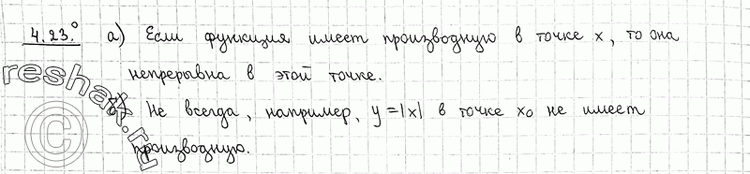 4.23.° а) Если функция имеет производную в точке x, то она
непрерывна в этой точке.
б) Не всегда, например, y=|x| в точке x₀ не имеет
производную.
reshak.ru
©